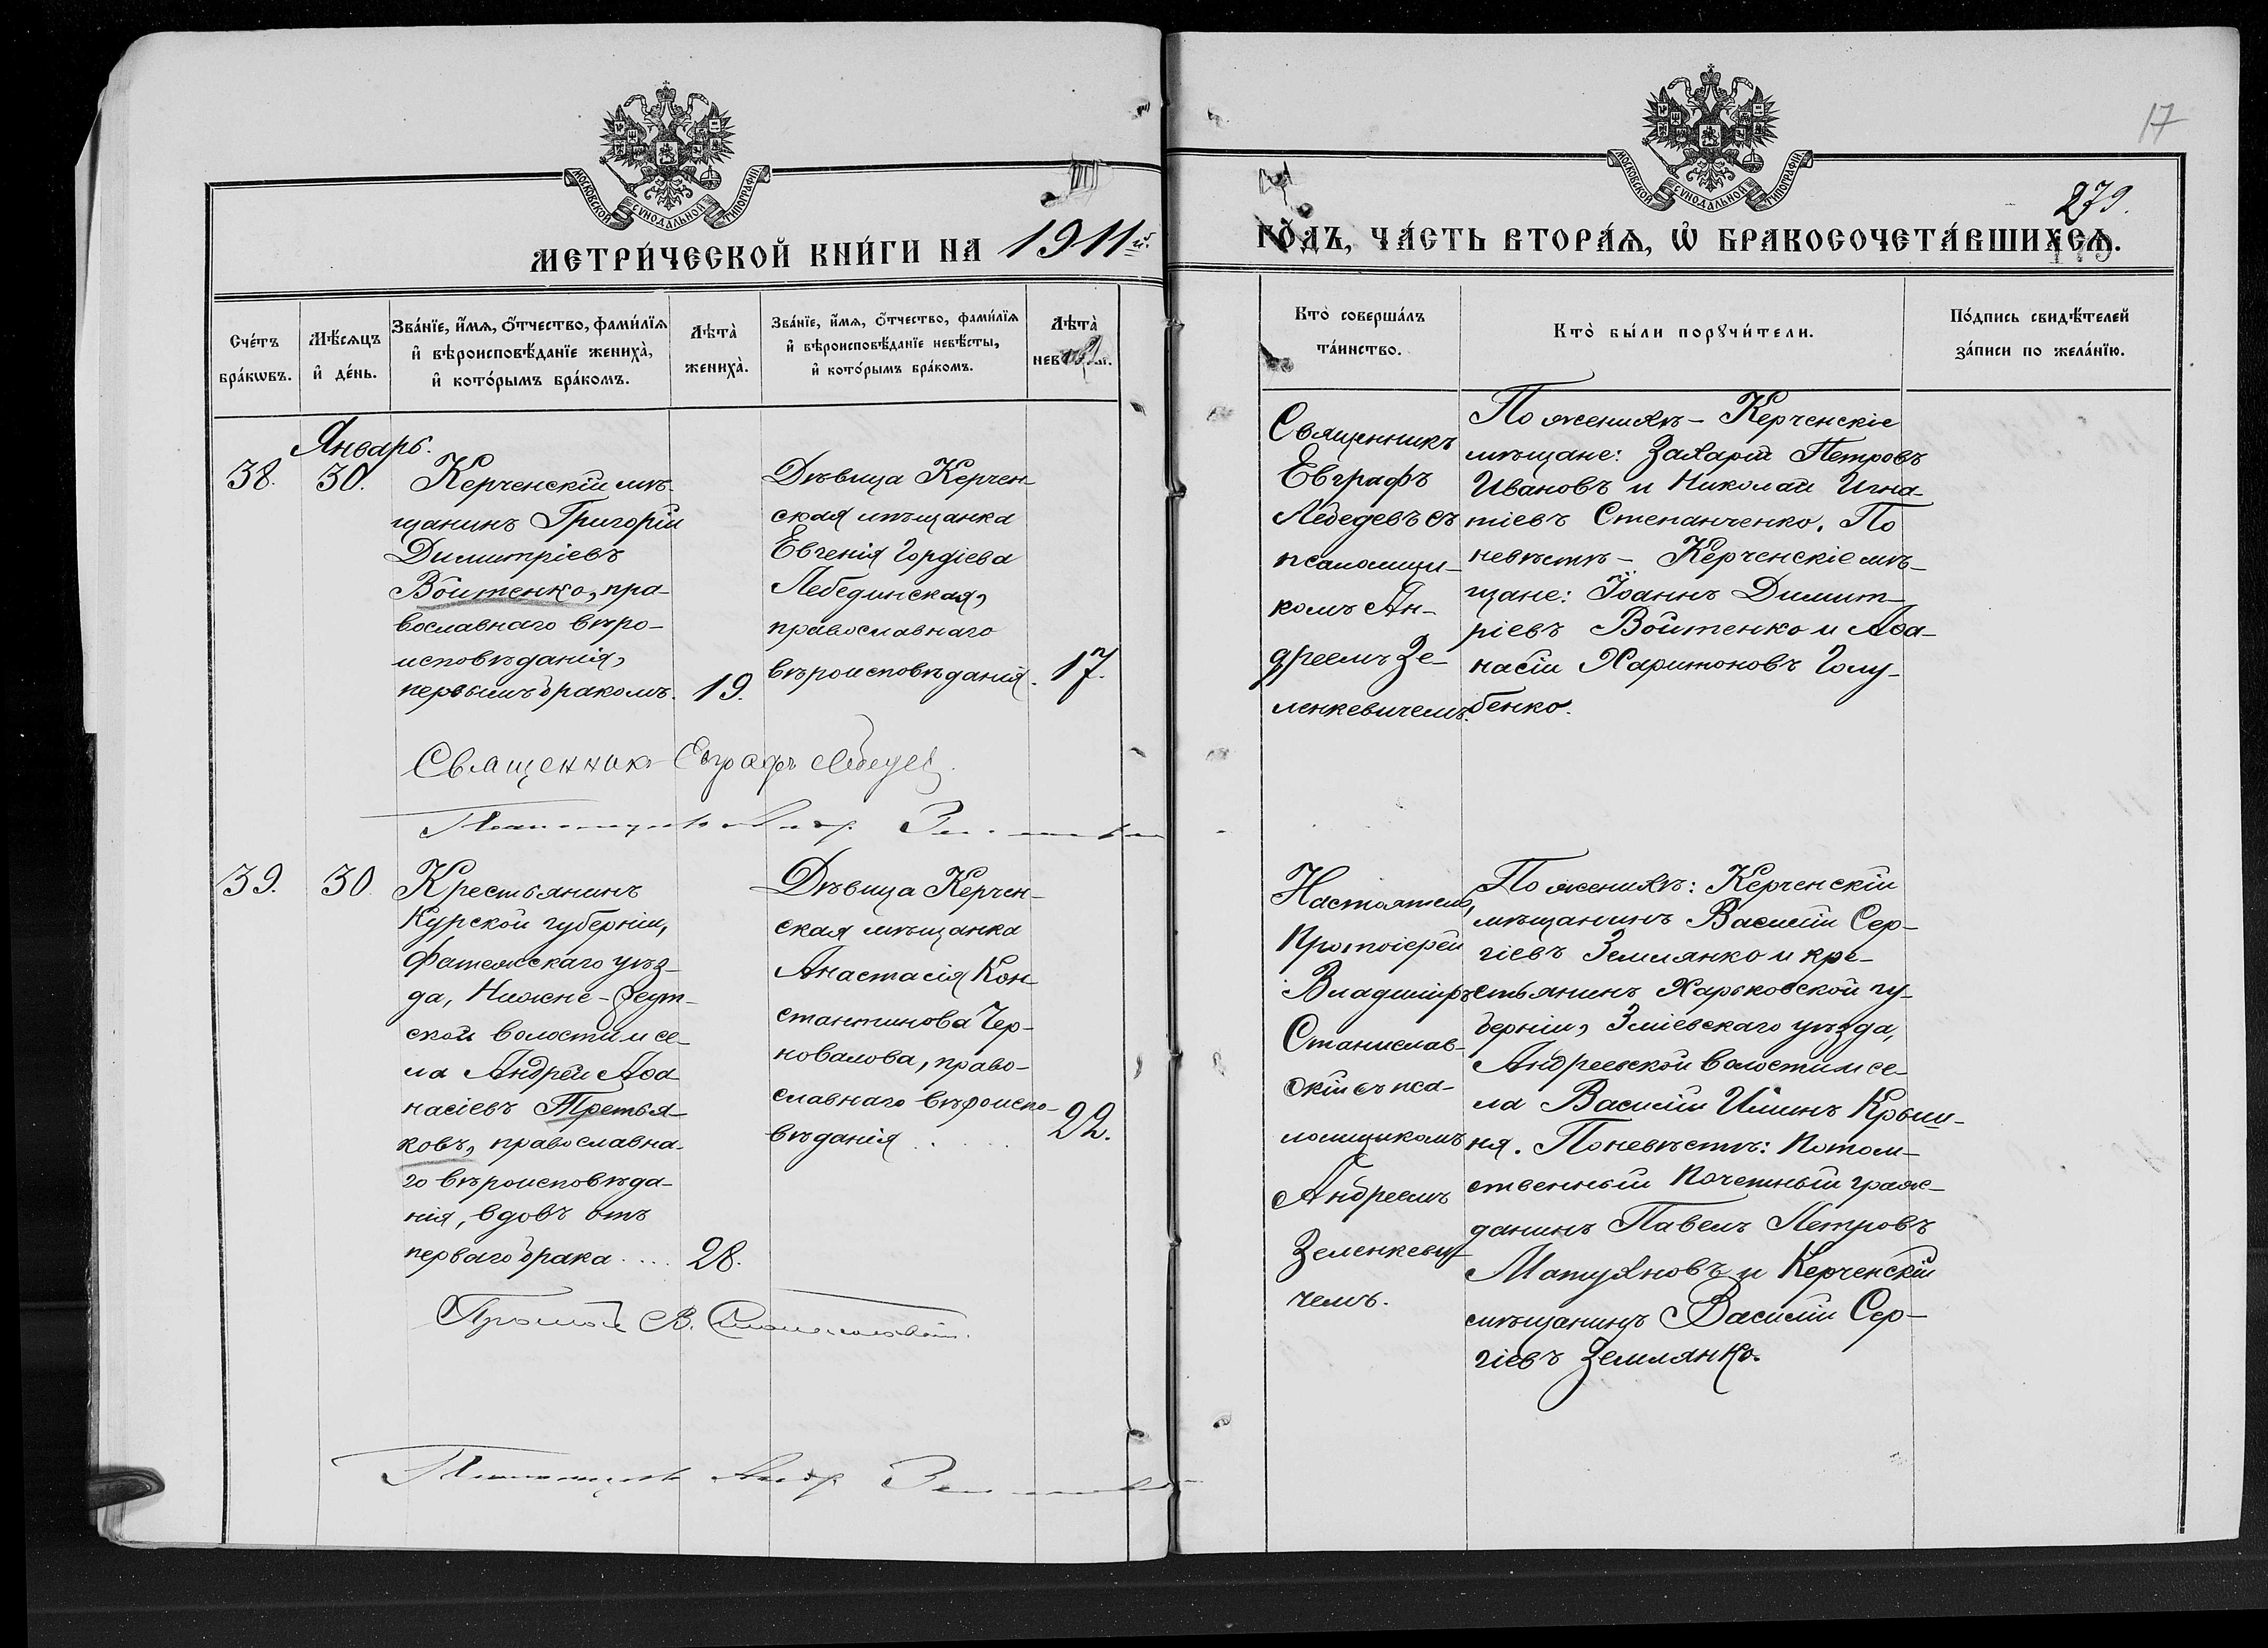 17
279.
МОСКОВСКОЙ СѴНОДАЛЬНОЙ ТИПОГРАФІИ
МОСКОВСКОЙ СѴНОДАЛЬНОЙ ТИПОГРАФІИ
МЕТРИ́ЧЕСКОЙ КНИ́ГИ НА 1911й.
ГО́ДЪ, ЧА́СТЬ ВТОРА́Ѧ, Ѡ҆ БРАКОСОЧЕТА́ВШИХСѦ.
Сче́тъ
бра́кѡвъ.
Мѣ́сѧцъ
и҆ де́нь.
Зва́нїе, и҆́мѧ, ѻ҆́тчество, фами́лїѧ
и҆ вѣроисповѣ́данїе жениха̀,
и҆ кото́рымъ бра́комъ.
Лѣта̀
жениха̀.
Зва́нїе, и҆́мѧ, ѻ҆́тчество, фами́лїѧ
и҆ вѣроисповѣ́данїе невѣ́сты,
и҆ кото́рымъ бра́комъ.
Лѣта̀
Кто̀ соверша́лъ
та́инство.
Кто̀ бы́ли порꙋчи́тели.
По́дпись свидѣ́телей
за́писи по жела́нїю.
Январь.
38.
30.
Керченскій мѣ-
щанинъ Григорій
Димитріевъ
Войтенко, пра-
вославнаго вѣро-
исповѣданія,
первымъ бракомъ.
19.
Дѣвица Керчен-
ская мѣщанка
Евгенія Гордіева
Лебединская,
православнаго
вѣроисповѣданія.
17.
Священникъ
Евграфъ
Лебедевъ съ
псаломщи-
комъ Ан-
дреемъ Зе-
ленкевичемъ.
По женихѣ - Керченскіе
мѣщане: Захарій Петровъ
Ивановъ и Николай Игна-
тіевъ Степанченко. По
невѣстѣ - Керченскіе мѣ-
щане: Іоаннъ Димит-
ріевъ Войтенко и Аѳа-
насій Харитоновъ Голу-
бенко.
Священникъ Евграфъ Лебедев
Псаломщикъ Андр. Зеленкевич
39.
30.
Крестьянинъ
Курской губерніи,
Фатежскаго уѣз-
да, Нижне-Реут-
ской волости и се-
ла Андрей Аѳа-
насіевъ Третья-
ковъ, православна-
го вѣроисповѣда-
нія, вдовъ отъ
перваго брака ....
28.
Дѣвица Керчен-
ская мѣщанка
Анастасія Кон-
стантинова Чер-
новалова, право-
славнаго вѣроиспо-
вѣданія . . . .
22.
Настоятель,
Протоіерей
Владиміръ
Станислав-
скій съ пса-
ломщикомъ
Андреемъ
Зеленкеви-
чемъ.
По женихѣ: Керченскій
мѣщанинъ Василій Сер-
гіевъ Землянко и кре-
стьянинъ Харьковской гу-
берніи, Зміевскаго уѣзда,
Андреевской волости и се-
ла Василій Ильинъ Крыш-
ня. По невѣстѣ: Потом-
ственный Почетный граж-
данинъ Павелъ Петровъ
Матухновъ и Керченскій
мѣщанинъ Василій Сер-
гіевъ Землянко.
Протоі. В. Станиславскій.
Псаломщикъ Андр. Зеленкевич